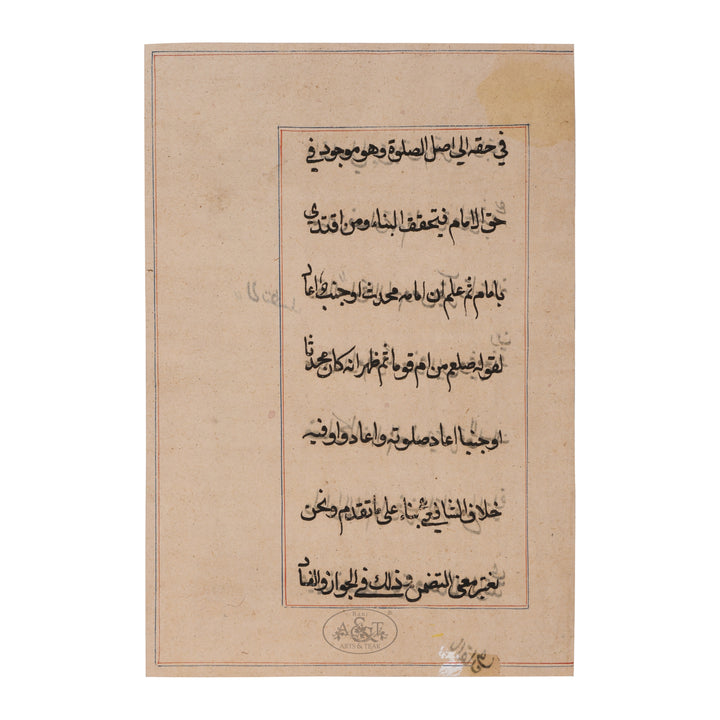 في حقه الي اصل الصلوة وهو موجود في
حق الامام فيتحقق البناء ومن اقتدي
بامام ثم علم ان امامه محدث او جنب اعاد
لقوله صلعم من ام قوما ثم ظهر انه كان محدثا
او جنبا اعاد صلوته واعادوا وفيه
خلاف الشافعي بناء علي ما تقدم ونحن
نعتبر معني التضمن وذلك في الجواز والفساد
Rani
A & T
ARTS & TEAK